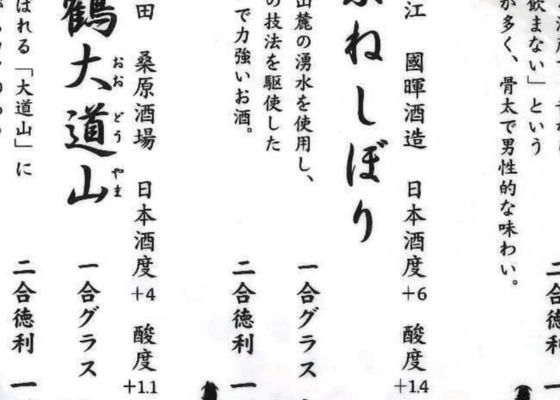 飲まない」という
が多く、骨太で男性的な味わい。
二合徳利 一
江 國暉酒造 日本酒度+6 酸度+1.4
ねしぼり
山麓の湧水を使用し、
の技法を駆使した
で力強いお酒。
一合グラス
二合徳利 一
田 桑原酒場 日本酒度+4 酸度+1.1
鶴大道山
おお どう やま
ばれる「大道山」に
一合グラス
二合徳利 一